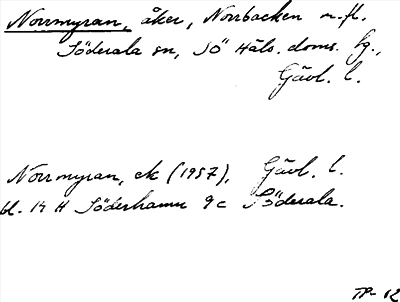 Norrmyran, åker, Norrbacken m.fl.
Söderala sn, SÖ Häls. doms. fg.,
Gävl. l.
Norrmyran, ek (1957), Gävl. l.
bl. 14 H Söderhamn 9 c Söderala.
TP-62